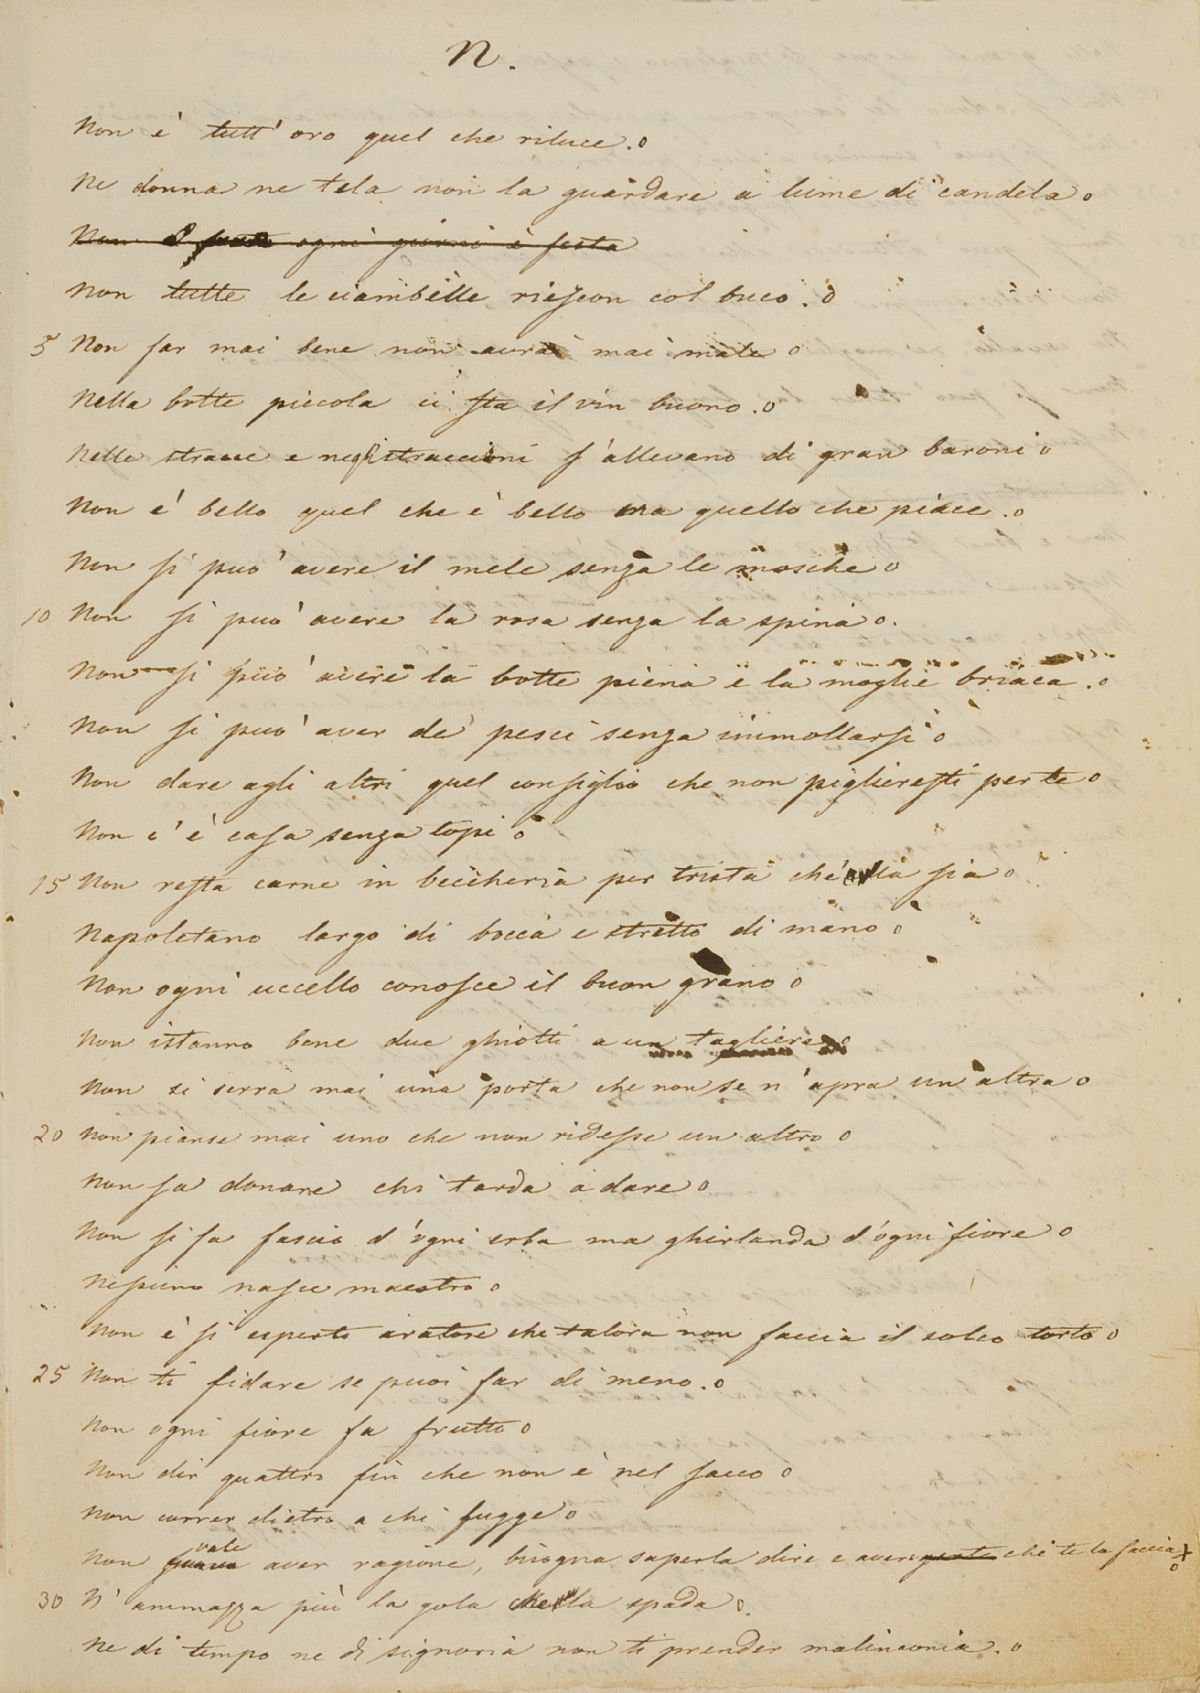 N.
Non è tutt' oro quel che riluce.o
Ne donna ne tela non la guardare a lume di candela o
Non ogni giorni è festa
Non tutte le ciambelle riescon col buco.o
5 Non far mai bene non avrai mai male o
Nella botte piccola ci sta il vin buono.o
Nelle stracce e negli stracciоni s'allevano di gran baroni o
Non e' bello quel che è bello ma quello che piace.o
Non si puo' avere il mele senza le mosche o
10 Non si puo' avere la rosa senza la spina o.
Non si puo' avere la botte piena e la moglie briaca.o
Non si puo' aver de' pesci senza immollarsi o
Non dare agli altri quel consiglio che non piglieresti per te o
Non c'è casa senza topi o
15 Non resta carne in beccheria per trista che ella sia o
Napoletano largo di bocca e stretto di mano o
Non ogni uccello conosce il buon grano o
Non istanno bene due ghiotti a un tagliere o
Non si serra mai una porta che non se n'apra un altra o
20 Non pianse mai uno che non ridesse un altro o
Non sa donare chi tarda a dare o
Non si fa fascio d'ogni erba ma ghirlanda d'ogni fiore o
Nessuno nasce maestro o
Non è si esperto aratore che talora non faccia il solco torto o
25 Non ti fidare se puoi far di meno.o
Non ogni fiore fa frutto o
Non dir quattro fin che non è nel sacco o
Non correr dietro a chi fugge o
vale
Non aver ragione, bisogna saperla dire e aver chi te la faccia x o
30 N' ammazza più la gola che la spada o.
Ne di tempo ne di signoria non ti prender malinconia.o